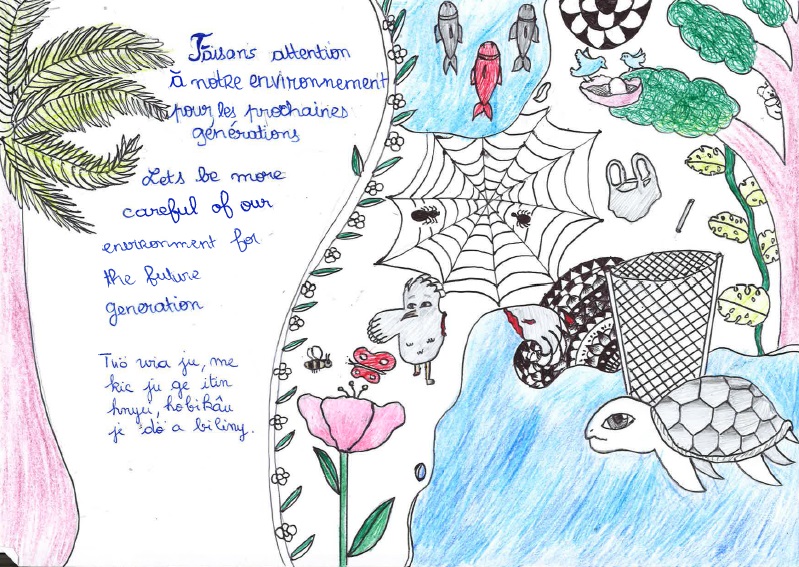 Faisans attention
à notre environnement
pour les prochaines
générations
Lets be more
careful of our
environment for
the future
generation
ju, me
kic ju ge itin
hnyei,
je dö a biliny.